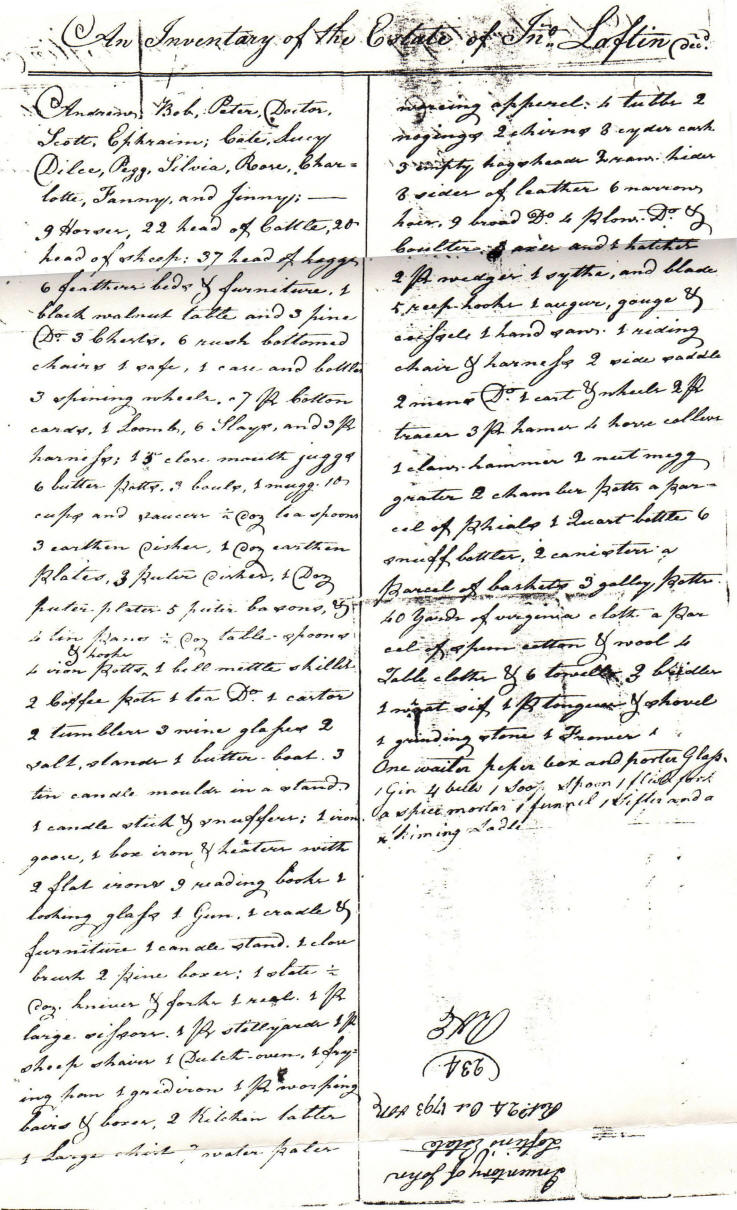 An Inventary of the Estate of Jno. Laftin decd.
Andrew, Bob, Peter, Doctor,
Scott, Ephraim; Cate, Lucy
Dilce, Pegg, Silvia, Rose, Char=
lotte, Fanny, and Jinny; —
9 Horses, 22 head of Cattle, 20
head of sheep; 37 head of hoggs
6 feathers beds & furniture, 1
black walnut table and 3 pine
Do. 3 Chests, 6 rush bottomed
chairs 1 safe, 1 case and bottles
3 spining wheels, 7 pr Cotton
cards, 1 Loomb, 6 Slays, and 3 pr
harness; 15 close mouth juggs
6 butter potts, 3 bouls, 1 mugg. 10
cups and saucers ½ doz tea spoons
3 earthen dishes, 1 doz earthen
plates, 3 puter dishes, 1 Doz
puter plates 5 puter basons, &
4 tin pans ½ doz table spoons
& hooks
4 iron potts, 1 bell mettle skillet
2 Coffee pots 1 tea Do. 1 castor
2 tumblers 3 wine glasses 2
salt, stands 1 butter-boat. 3
tin candle moulds in a stand
1 candle stick & snuffers; 1 iron
goose, 1 box iron & heaters with
2 flat irons 9 reading books 1
looking glass 1 Gun. 1 cradle &
furniture 1 candle stand. 1 close
brush 2 pine boxes; 1 slate ½
doz. knives & forks 1 reel. 1 pr
large sissors. 1 pr stillyards 1 pr
sheep shairs 1 Dutch-oven, 1 fry-
ing pan 1 gridiron 1 pr worping
bairs & boxes, 2 Kitchin tables
1 Large chist 2 water pales
apperel; 4 tubbs 2
nogings 2 chirns 8 cyder cask
3 empty hogsheads 2 raw hides
8 sides of leather 6 narrow
hoes, 9 broad Do. 4 plow Do. &
Coulter 3 axes and 1 hatchet
2 pr wedges 1 sythe, and blade
5 reep hooks 1 augur, gouge &
1 hand saw. 1 riding
chair & harness 2 side saddle
2 mens Do. 1 cart & wheels 2 pr
traces 3 pr hames 4 horse collers
1 claw-hammer 2 nutmegg
grater 2 chamber potts a par=
cel of phials 1 Quart bottle 6
snuff bottles, 2 canisters a
parcel of baskets 3 galley potts
40 yards of virginia cloth a par
cel of spun cotton & wool 4
Table cloths & 6 towells 3 bridles
1 sif 1 pr tongues & shovel
1 grinding stone 1 Frower 1
One waiter peper box and porter Glass.
1 Gin 4 bells 1 Soop spoon 1 flesh fork
a spice mortar 1 funnil 1 Sifter and a
Skiming Ladle
(234)
Ret. 24 Oct 1793
Loftins Estate
Inventory of John